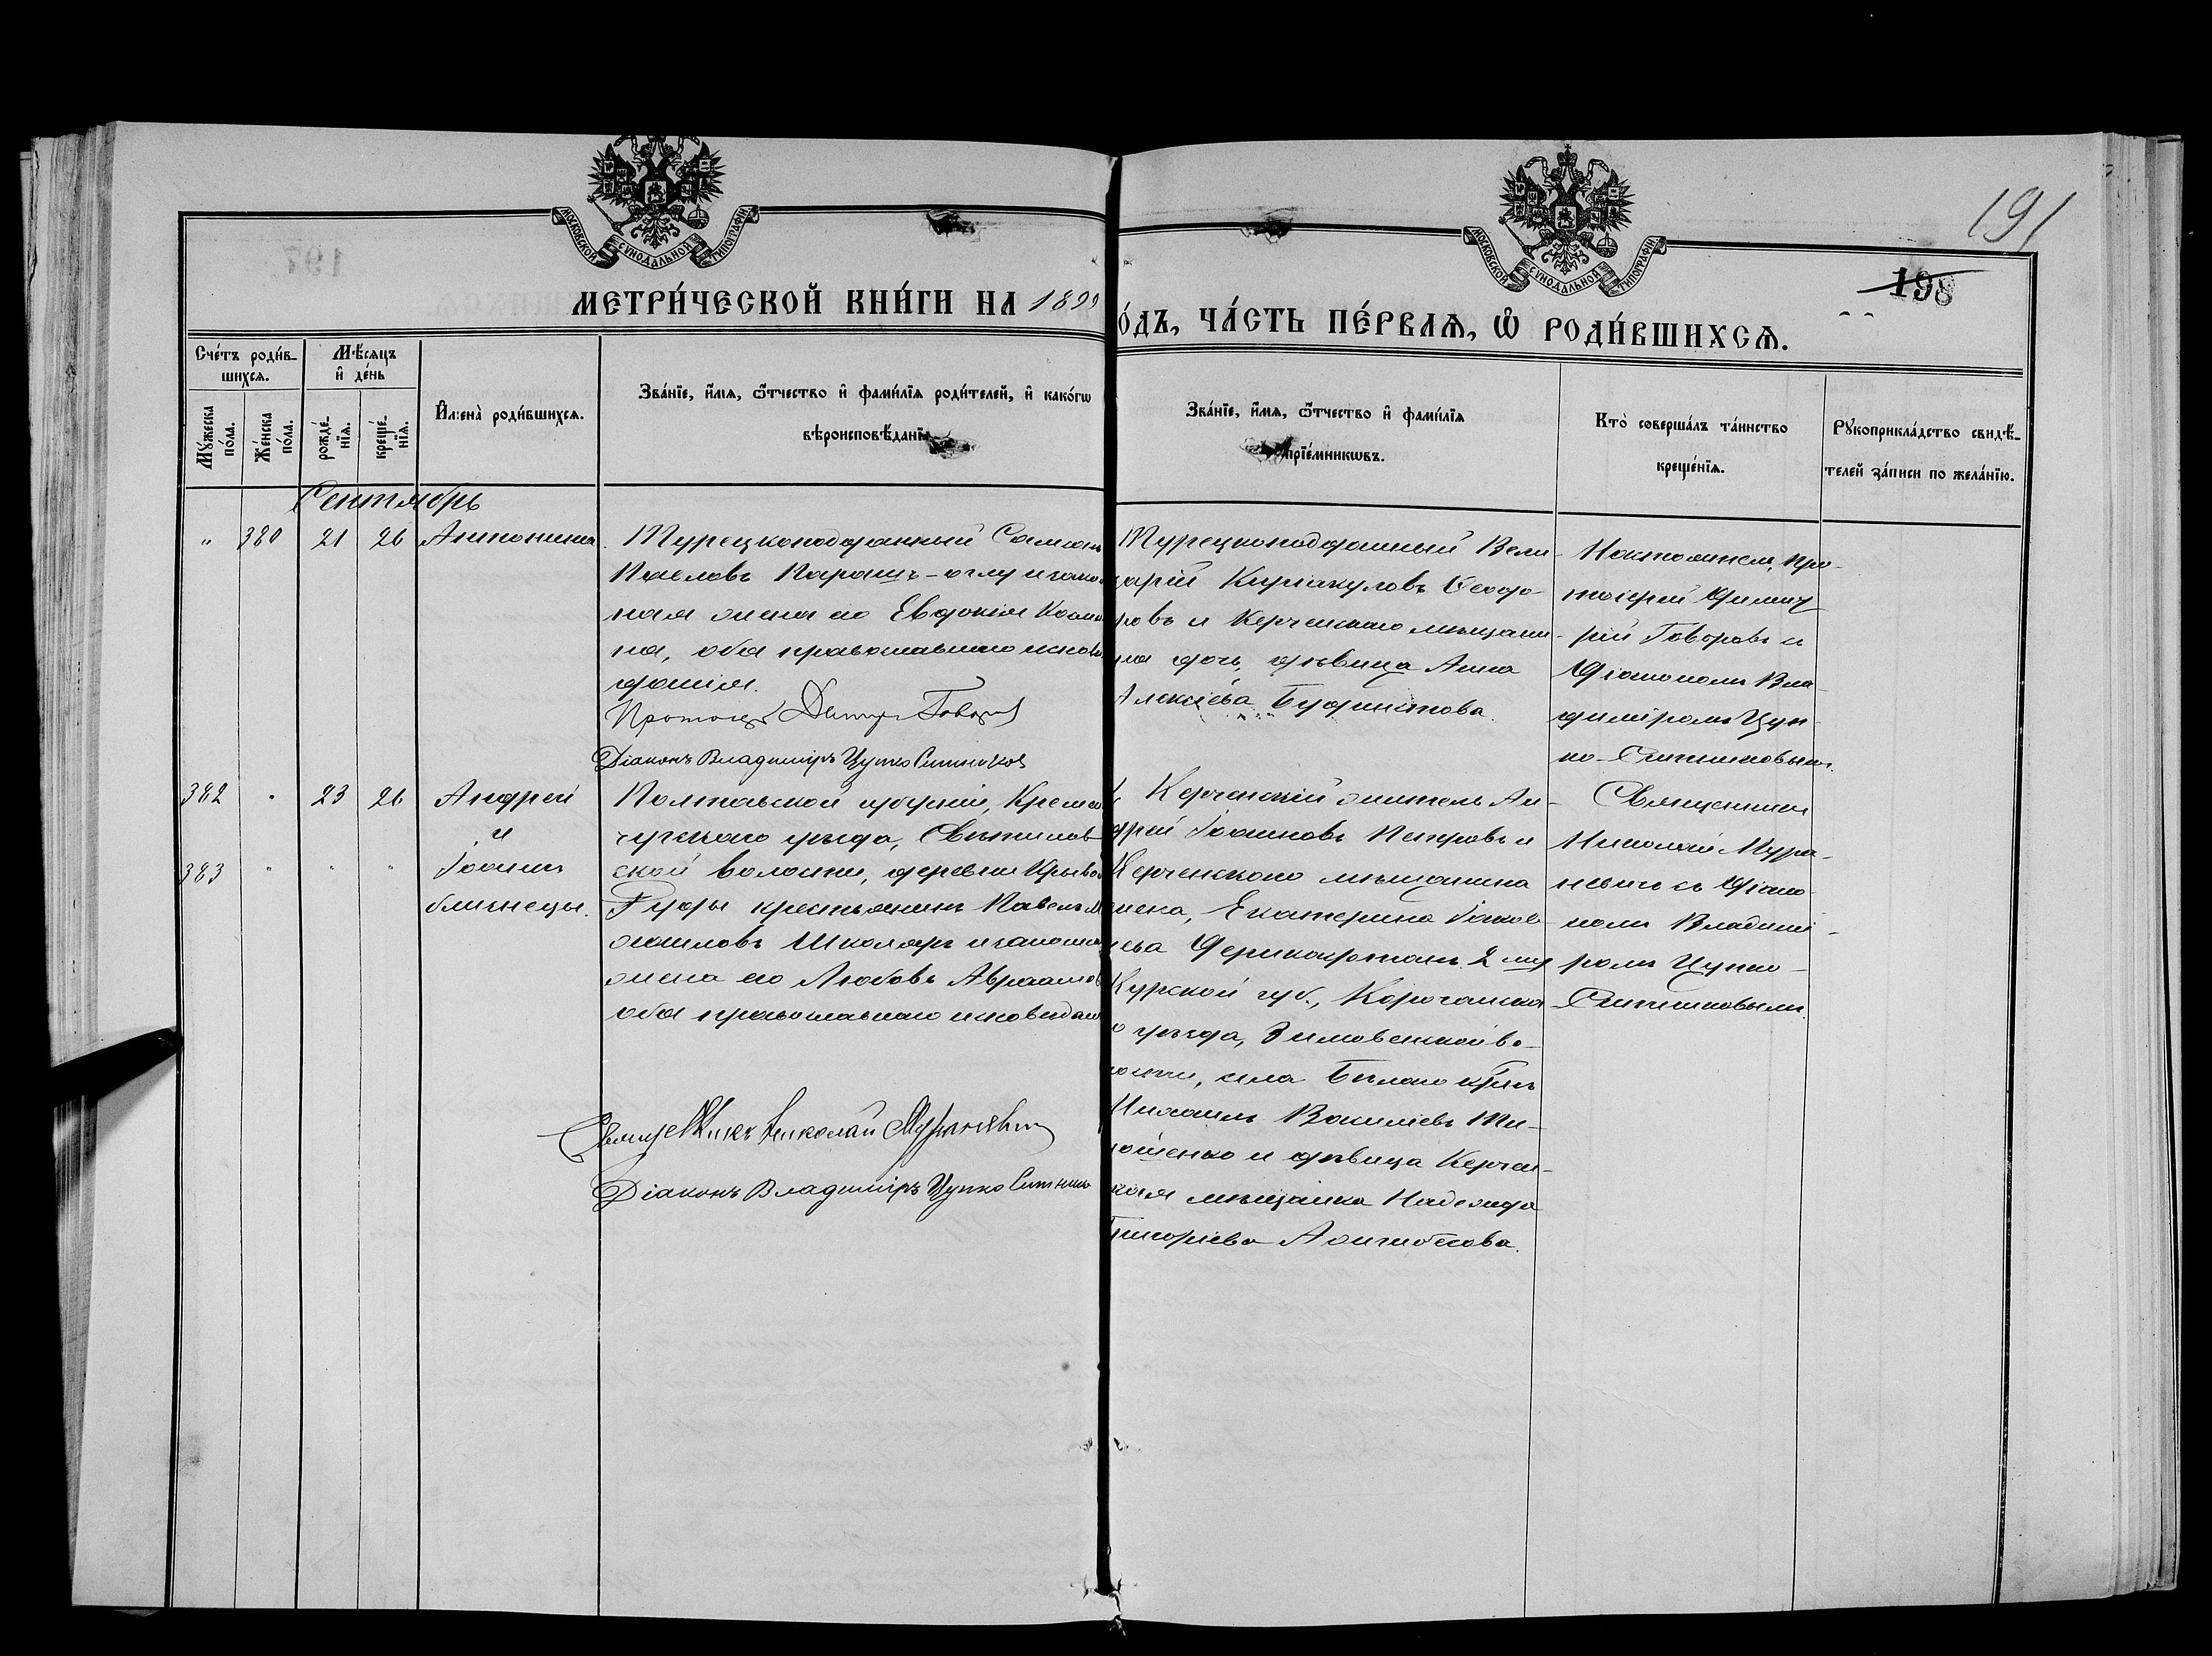 191
198
МОСКОВСКОЙ СѴНОДАЛЬНОЙ ТИПОГРАФІИ
МОСКОВСКОЙ СѴНОДАЛЬНОЙ ТИПОГРАФІИ
МЕТРИ́ЧЕСКОЙ КНИ́ГИ НА 1899
О́ДЪ, ЧА́СТЬ ПЕ́РВАѦ, Ѡ҆ РОДИ́ВШИХСѦ.
Сче́тъ роди́в-
шихсѧ.
Мѣ́сѧцъ
и҆ де́нь
Мꙋ́жеска
по́ла.
Же́нска
по́ла.
рожде́-
нїѧ.
креще́-
нїѧ.
И҆мена̀ роди́вшихсѧ.
Зва́нїе, и҆́мѧ, ѻ҆́тчество и҆ фами́лїѧ роди́телей, и҆ како́гѡ
вѣроисповѣ́данїѧ
Зва́нїе, и҆́мѧ, ѻ҆́тчество и҆ фами́лїѧ
прїе́мникѡвъ.
Кто̀ соверша́лъ та́инство
креще́нїѧ.
Рꙋкоприкла́дство свидѣ́-
телей за́писи по жела́нїю.
Сентябрь
" 380 21 26 Антонина
Турецкоподданный
Павловъ Паращъ-оглу и закон
ная жена его Евдокія
на, оба православнаго испов
данія.
Протоіер Дмитр Говоров
Діаконъ Владиміръ Цупко Ситников
Турецкоподданный Вели
сарій Киріакуловъ Ѳеодо-
ровъ и Керченскаго мѣщани-
на дочь, дѣвица Анна
Алексіева
Настоятель, про-
тоіерей Димит
рій Говоровъ съ
Діакономъ Вла-
диміромъ Цуп-
ко-Ситниковымъ.
382 " 23 26 Андрей
и
383 " " " Іоаннъ
близнецы.
Полтавской губерніи, Кремен
чугскаго уѣзда,
ской волости, деревни Кривой
Руды крестьянинъ Павелъ М
хаиловъ Школяръ и законная
жена его Любовь Авраамов
оба православнаго исповѣдан
Священникъ Николай Мураневич
Діаконъ Владиміръ Цупко Ситнико
1, Керченскій житель Ан-
дрей Іоанновъ Петровъ и
Керченскаго мѣщанина
жена, Екатерина Іаков-
лева 2 мя
Курской губ., Корочанска
о уѣзда, Зимовенской во-
лости, села Бѣлаго кр-нъ
Михаилъ Василіевъ Ти-
мошенко и дѣвица Керчен-
ская мѣщанка Надежда
Григоріева
Священникъ
Николай Мура-
невичъ съ Діако-
номъ Владимі-
ромъ Цупко-
Ситниковымъ.